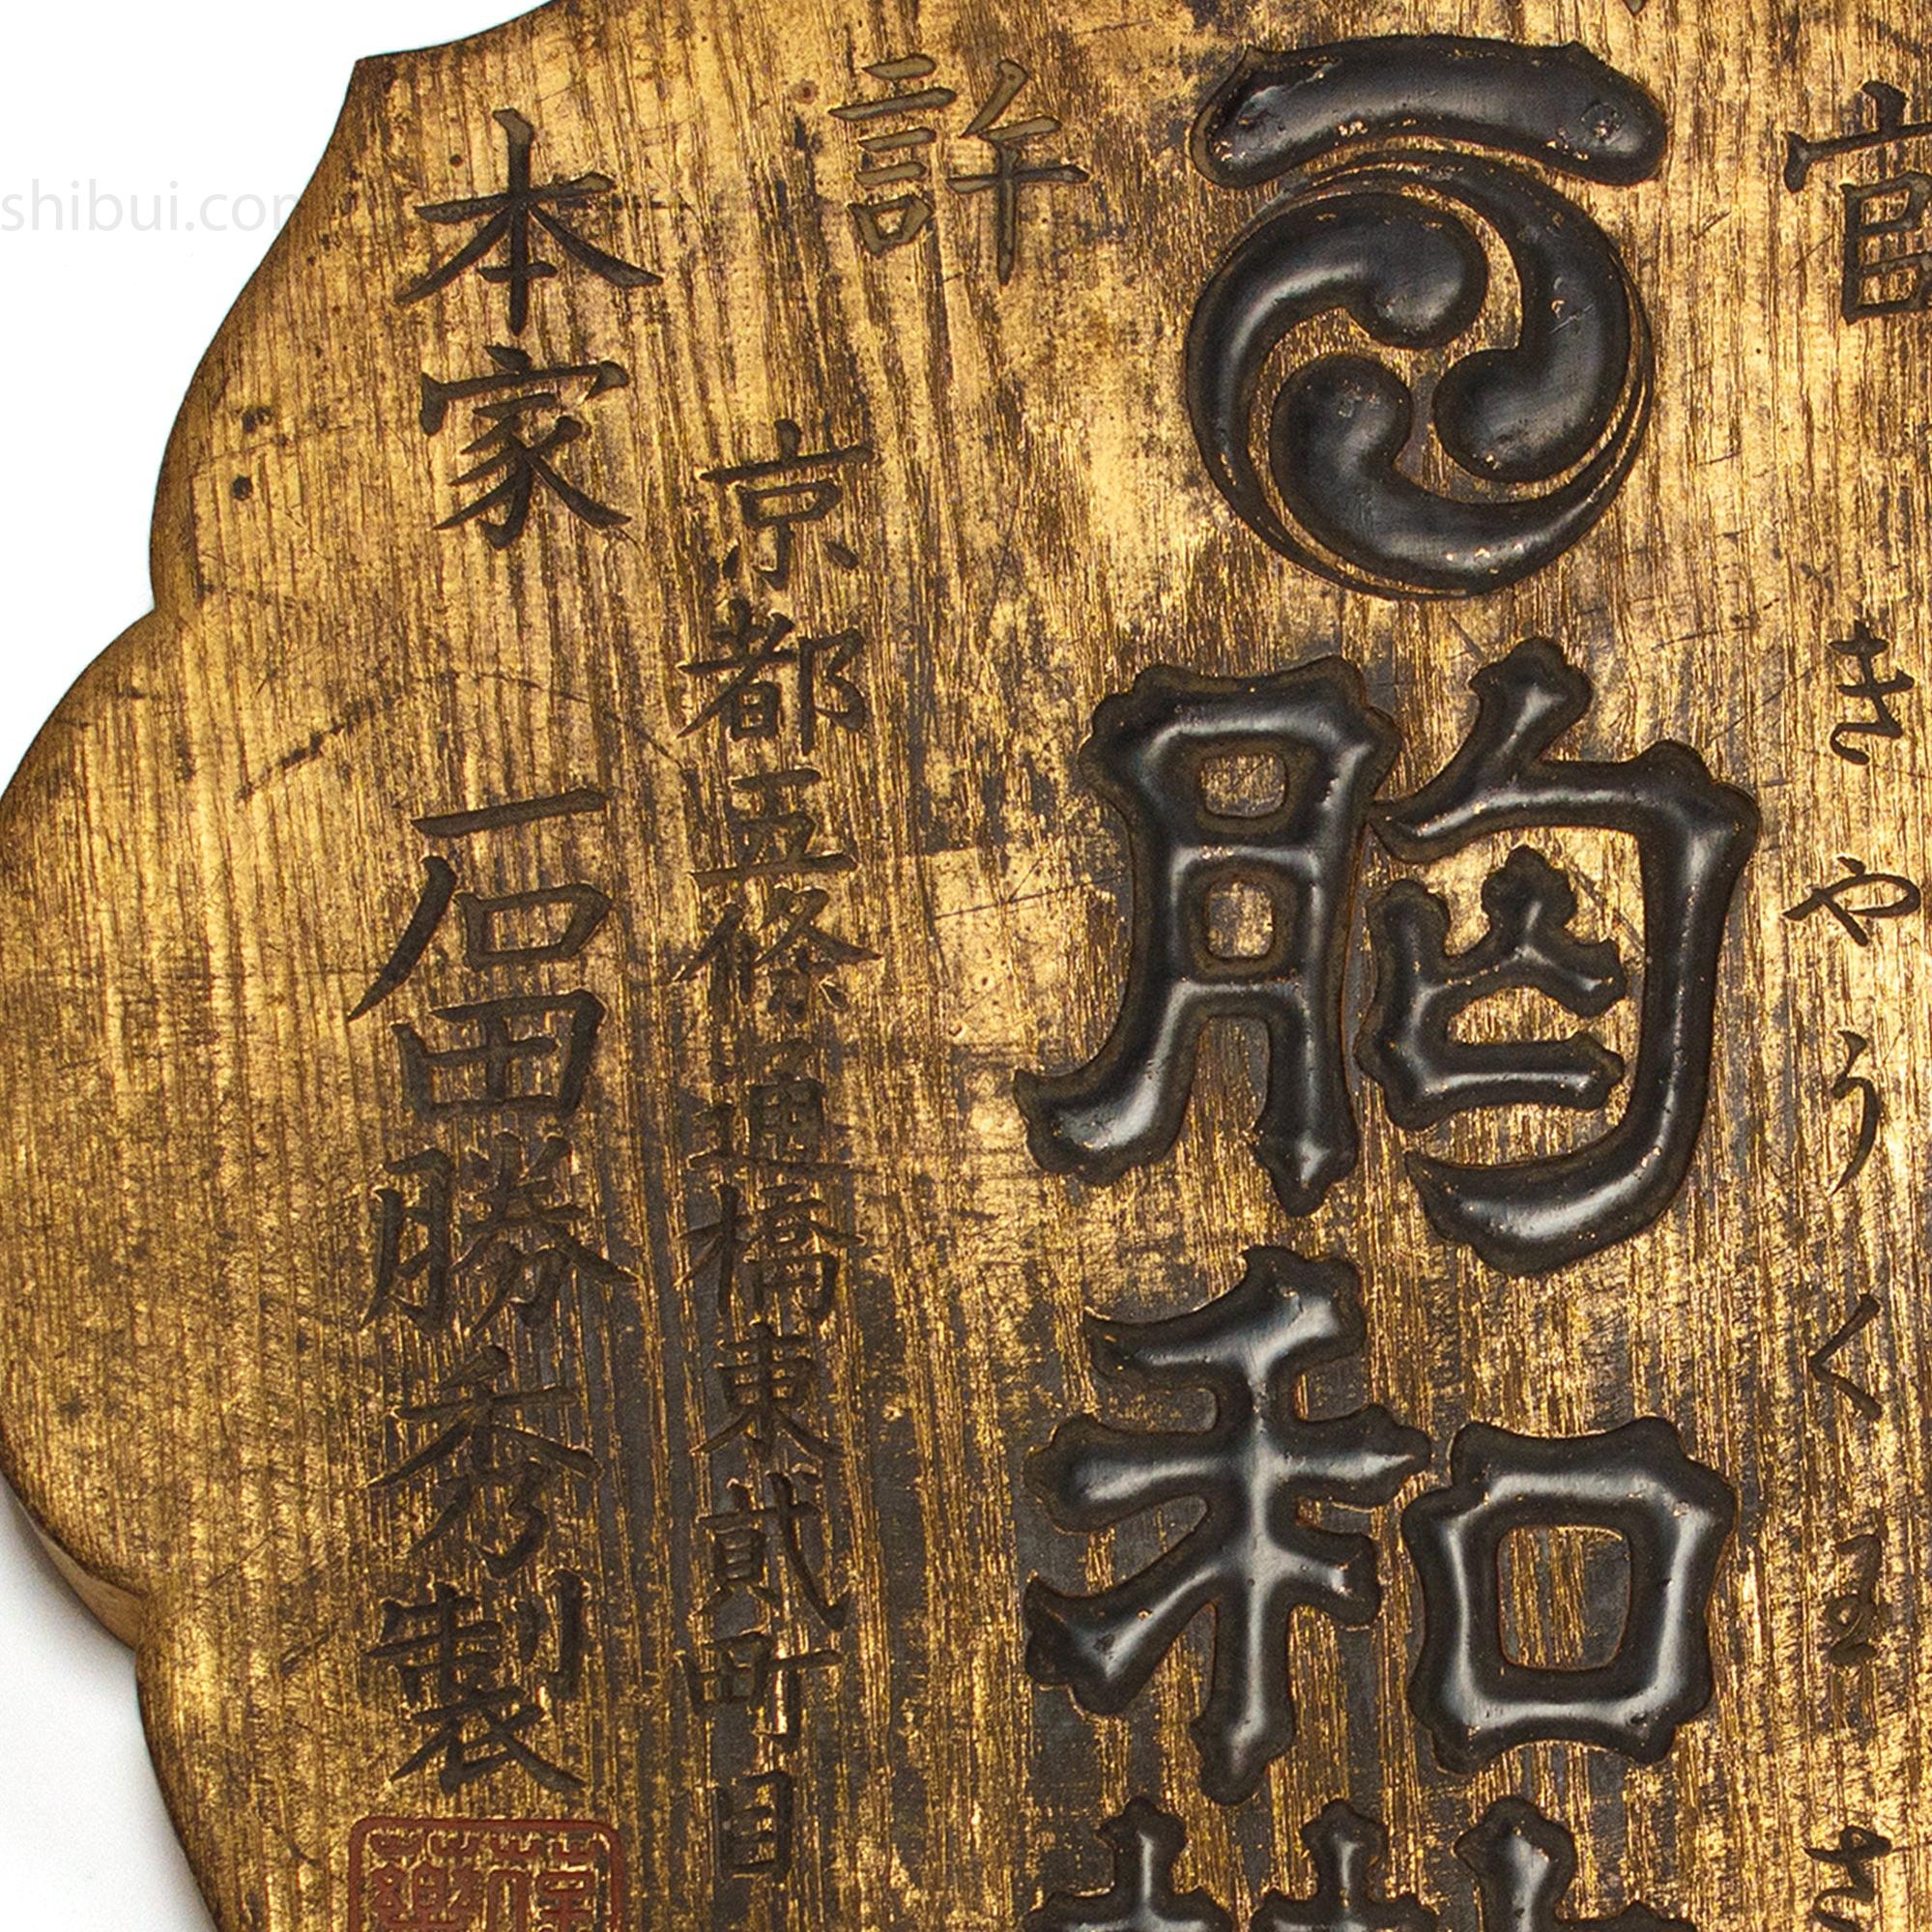 官
許
きやうくわ
胸和
京都五條通橋東貳町目
本家
石田勝秀製
shibui.com